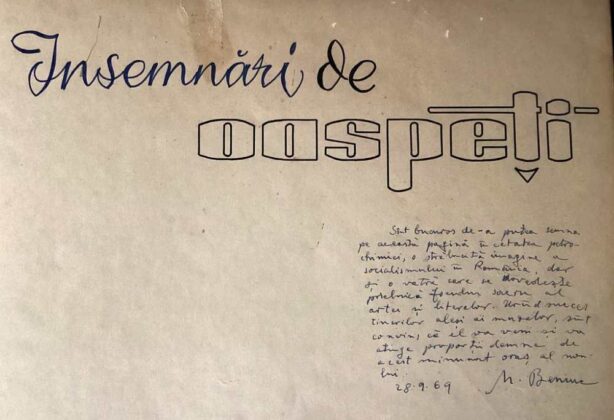 Însemnări de
oaspeți
Sînt bucuros de-a putea semna
pe această pagină în cetatea petro-
chimiei, o strălucită imagine a
socialismului în România, dar
și o vatră care se dovedește
prielnică focului sacru al
artei și literelor. Urînd succes
tinerilor aleși ai muzelor, sînt
convins că el va veni și va
atinge proporții demne de
acest minunat oraș al
lui.
28.9.69 M. Beniuc